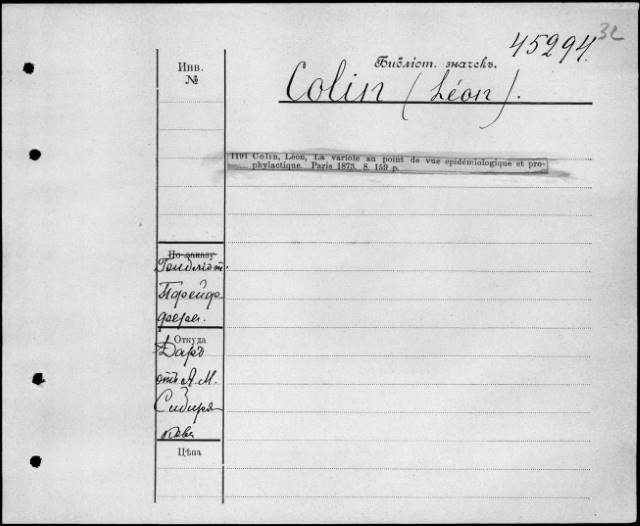 45294.
32
Инв.
№
Библіот. значекъ.
Colin (Léon).
1191 Colin, Léon, La variole au point de vue epidémiologique et pro-
phylactique. Paris 1873. 8. 159 p.
По заказу
Пфейф
фера.
Откуда
Даръ
отъ А. М.
Сибиря
кова
Цѣна